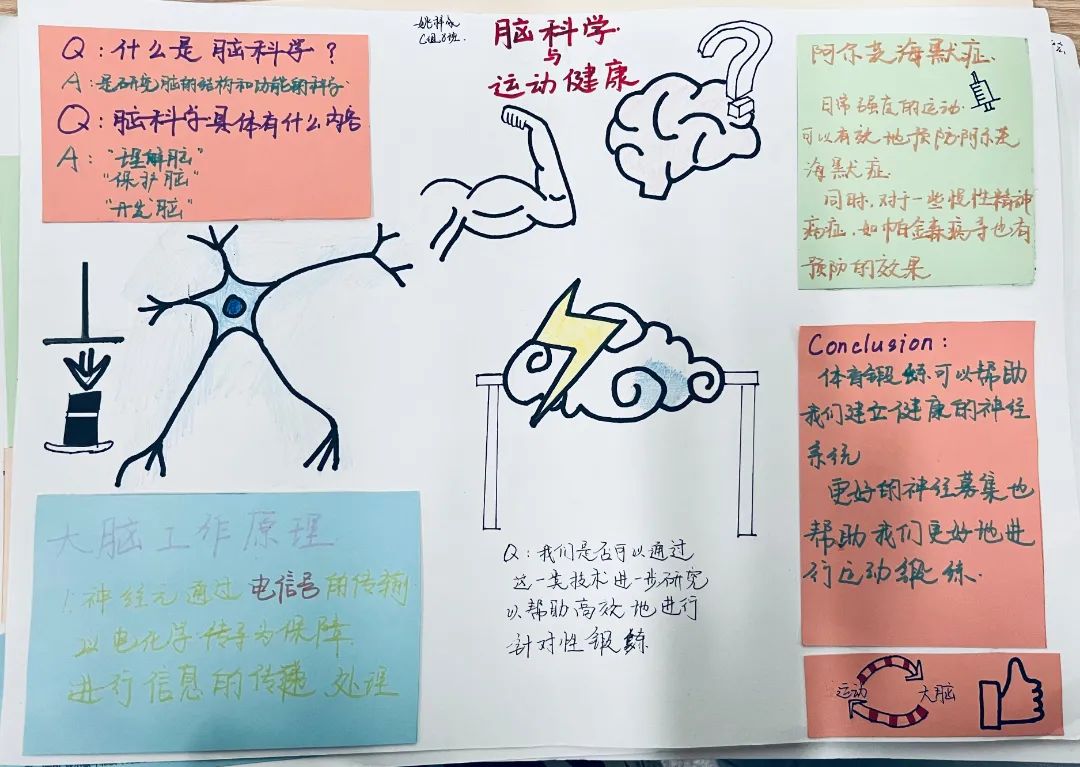 脑科学
与
运动健康
C组8班
Q:什么是脑科学?
A:是研究脑的结构和功能的科学
Q:脑科学具体有什么内容
A:"理解脑"
"保护脑"
"开发脑"
阿尔茨海默症.
日常强度的运动.
可以有效地预防阿尔茨
海默症.
同时,对于一些慢性精神
病症,如帕金森病等也有
预防的效果
Conclusion:
体育锻炼可以帮助
我们建立健康的神经
系统
更好的神经募集也
帮助我们更好地进
行运动锻炼.
大脑工作原理.
1.神经元通过电信号的传输
以电化学传导为保障.
进行信息的传递 处理
Q:我们是否可以通过
这一类技术进一步研究
以帮助高效地进行
针对性锻炼.
运动
大脑